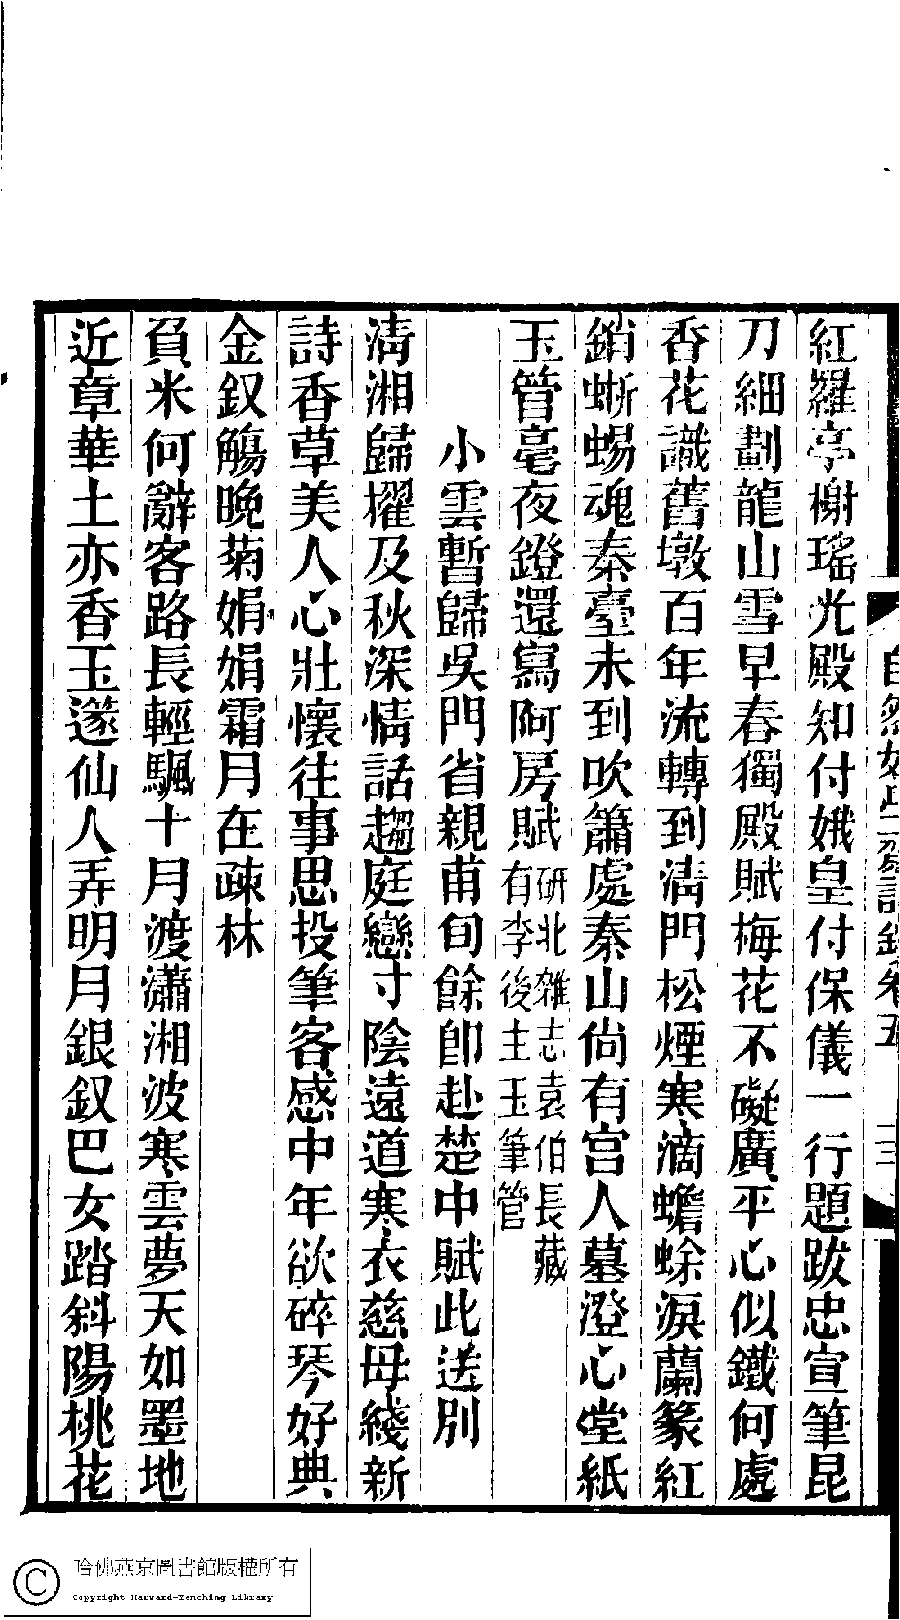 紅羅亭榭瑤光殿知付娥皇付保儀一行題跋忠宣筆昆
刀細劃龍山雪早春獨殿賦梅花不礙廣平心似鐵何處
香花識舊墩百年流轉到淸門松煙寒滴蟾蜍淚蘭篆紅
銷蜥蜴魂秦臺未到吹簫處秦山尙有宮人墓澄心堂紙
玉管毫夜鐙還寫阿房賦
硏北雜志袁伯長藏
有李後主玉筆管
小雲暫歸吳門省親甫旬餘卽赴楚中賦此送別
淸湘歸櫂及秋深情話趨庭戀寸陰遠道寒衣慈母綫新
詩香草美人心壯懷往事思投筆客感中年欲碎琴好典
金釵觴晚菊娟娟霜月在疎林
負米何辭客路長輕颿十月渡瀟湘波寒雲夢天如墨地
近章華土亦香玉邃仙人弄明月銀釵巴女踏斜陽桃花
自然好學齋詩鈔卷五
三
哈佛燕京圖書館版權所有
Copyright Harvard-Yenching Library